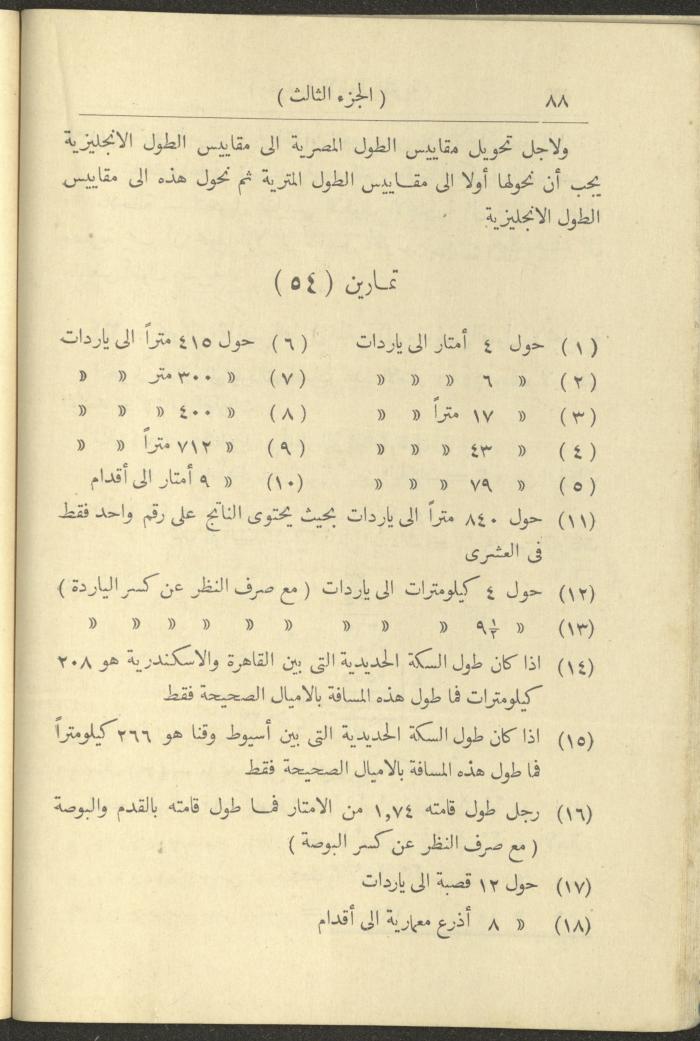 ٨٨ ( الجزء الثالث )
ولاجل تحويل مقاييس الطول المصرية الى مقاييس الطول الانجليزية
يجب أن نحولها أولا الى مقاييس الطول المترية ثم نحول هذه الى مقاييس
الطول الانجليزية
تمارين ( ٥٤ )
( ١ ) حول ٤ أمتار الى ياردات ( ٦ ) حول ٤١٥ متراً الى ياردات
( ٢ ) » ٦ » » » ( ٧ ) » ٣٠٠ متر » »
( ٣ ) » ١٧ متراً » » ( ٨ ) » ٤٠٠ » » »
( ٤ ) » ٤٣ » » » ( ٩ ) » ٧١٢ متراً » »
( ٥ ) » ٧٩ » » » (١٠) » ٩ أمتار الى أقدام
(١١) حول ٨٤٠ متراً الى ياردات بحيث يحتوى الناتج على رقم واحد فقط
فى العشرى
(١٢) حول ٤ كيلومترات الى ياردات ( مع صرف النظر عن كسر الياردة )
(١٣) » ٩½ » » » » » » » » »
(١٤) اذا كان طول السكة الحديدية التى بين القاهرة والاسكندرية هو ٢٠٨
كيلومترات فما طول هذه المسافة بالاميال الصحيحة فقط
(١٥) اذا كان طول السكة الحديدية التى بين أسيوط وقنا هو ٢٦٦ كيلومتراً
فما طول هذه المسافة بالاميال الصحيحة فقط
(١٦) رجل طول قامته ١,٧٤ من الامتار فما طول قامته بالقدم والبوصة
( مع صرف النظر عن كسر البوصة )
(١٧) حول ١٢ قصبة الى ياردات
(١٨) » ٨ أذرع معمارية الى أقدام